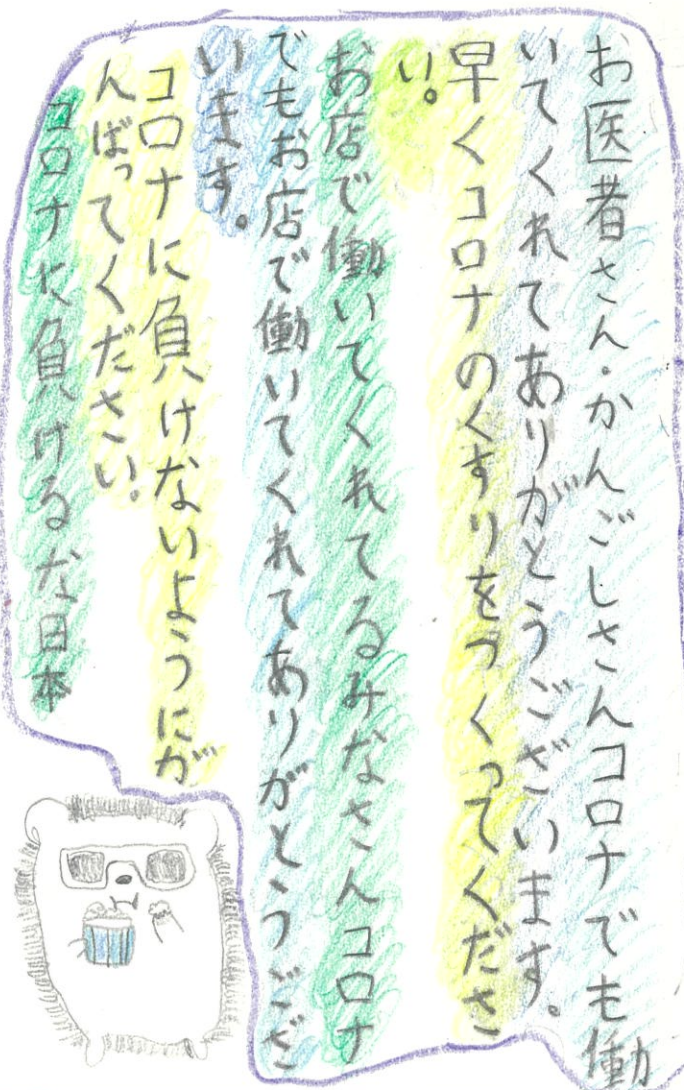 お医者さん・かんごしさんコロナでも働
いてくれてありがとうございます。
早くコロナのくすりをつくってくださ
い。
お店で働いてくれてるみなさんコロナ
でもお店で働いてくれてありがとうござ
います。
コロナに負けないようにが
んばってください。
コロナに負けるな日本